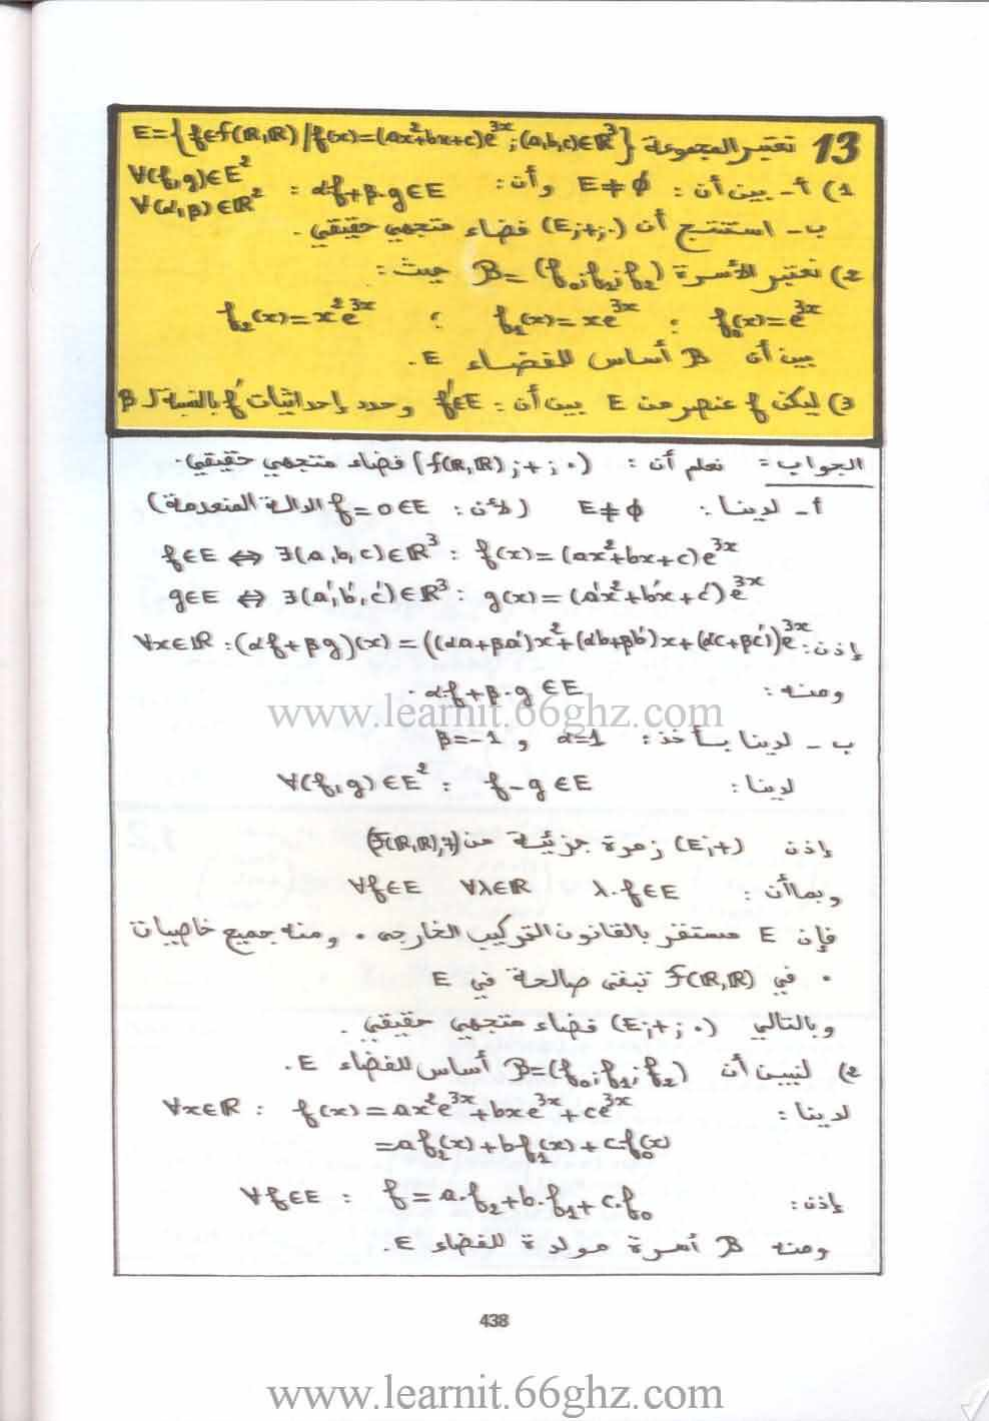 13 نعتبر المجموعة E={f∈f(ℝ,ℝ)/f(x)=(ax²+bx+c)e^{3x};(a,b,c)∈ℝ³}
1) أ- بين أن: E≠ϕ وأن: αf+β.g∈E : ∀(f,g)∈E² ∀(α,β)∈ℝ²
ب- استنتج أن (E;+;.) فضاء متجهي حقيقي.
2) نعتبر الأسرة B=(f₀;f₁;f₂) حيث:
f₀(x)=e^{3x} ; f₁(x)=xe^{3x} ; f₂(x)=x²e^{3x}
بين أن B أساس للفضاء E.
3) ليكن f عنصر من E بين أن: f'∈E وحدد إحداثيات f' بالنسبة ل B
الجواب: نعلم أن: (f(ℝ,ℝ);+;.) فضاء متجهي حقيقي.
أ- لدينا: E≠ϕ (لأن: f=0∈E الدالة المنعدمة)
f∈E ⇔ ∃(a,b,c)∈ℝ³: f(x)=(ax²+bx+c)e^{3x}
g∈E ⇔ ∃(a',b',c')∈ℝ³: g(x)=(a'x²+b'x+c')e^{3x}
إذن: ∀x∈ℝ:(αf+βg)(x)=((αa+βa')x²+(αb+βb')x+(αc+βc'))e^{3x}
ومنه: α.f+β.g∈E.
www.learnit.66ghz.com
ب- لدينا بأخذ: α=1 و β=-1
لدينا: ∀(f,g)∈E²: f-g∈E
إذن (E;+) زمرة جزئية من (F(ℝ,ℝ),+)
وبما أن: ∀f∈E ∀λ∈ℝ λ.f∈E
فإن E مستقر بالقانون التركيب الخارجي. ومنه جميع خاصيات
. في F(ℝ,ℝ) تبقى صالحة في E
وبالتالي (E;+;.) فضاء متجهي حقيقي.
2) لنبين أن B=(f₀;f₁;f₂) أساس للفضاء E.
لدينا: ∀x∈ℝ: f(x)=ax²e^{3x}+bxe^{3x}+ce^{3x}
=af₂(x)+bf₁(x)+c.f₀(x)
إذن: ∀f∈E : f=a.f₂+b.f₁+c.f₀
ومنه B أسرة مولدة للفضاء E.
438
www.learnit.66ghz.com